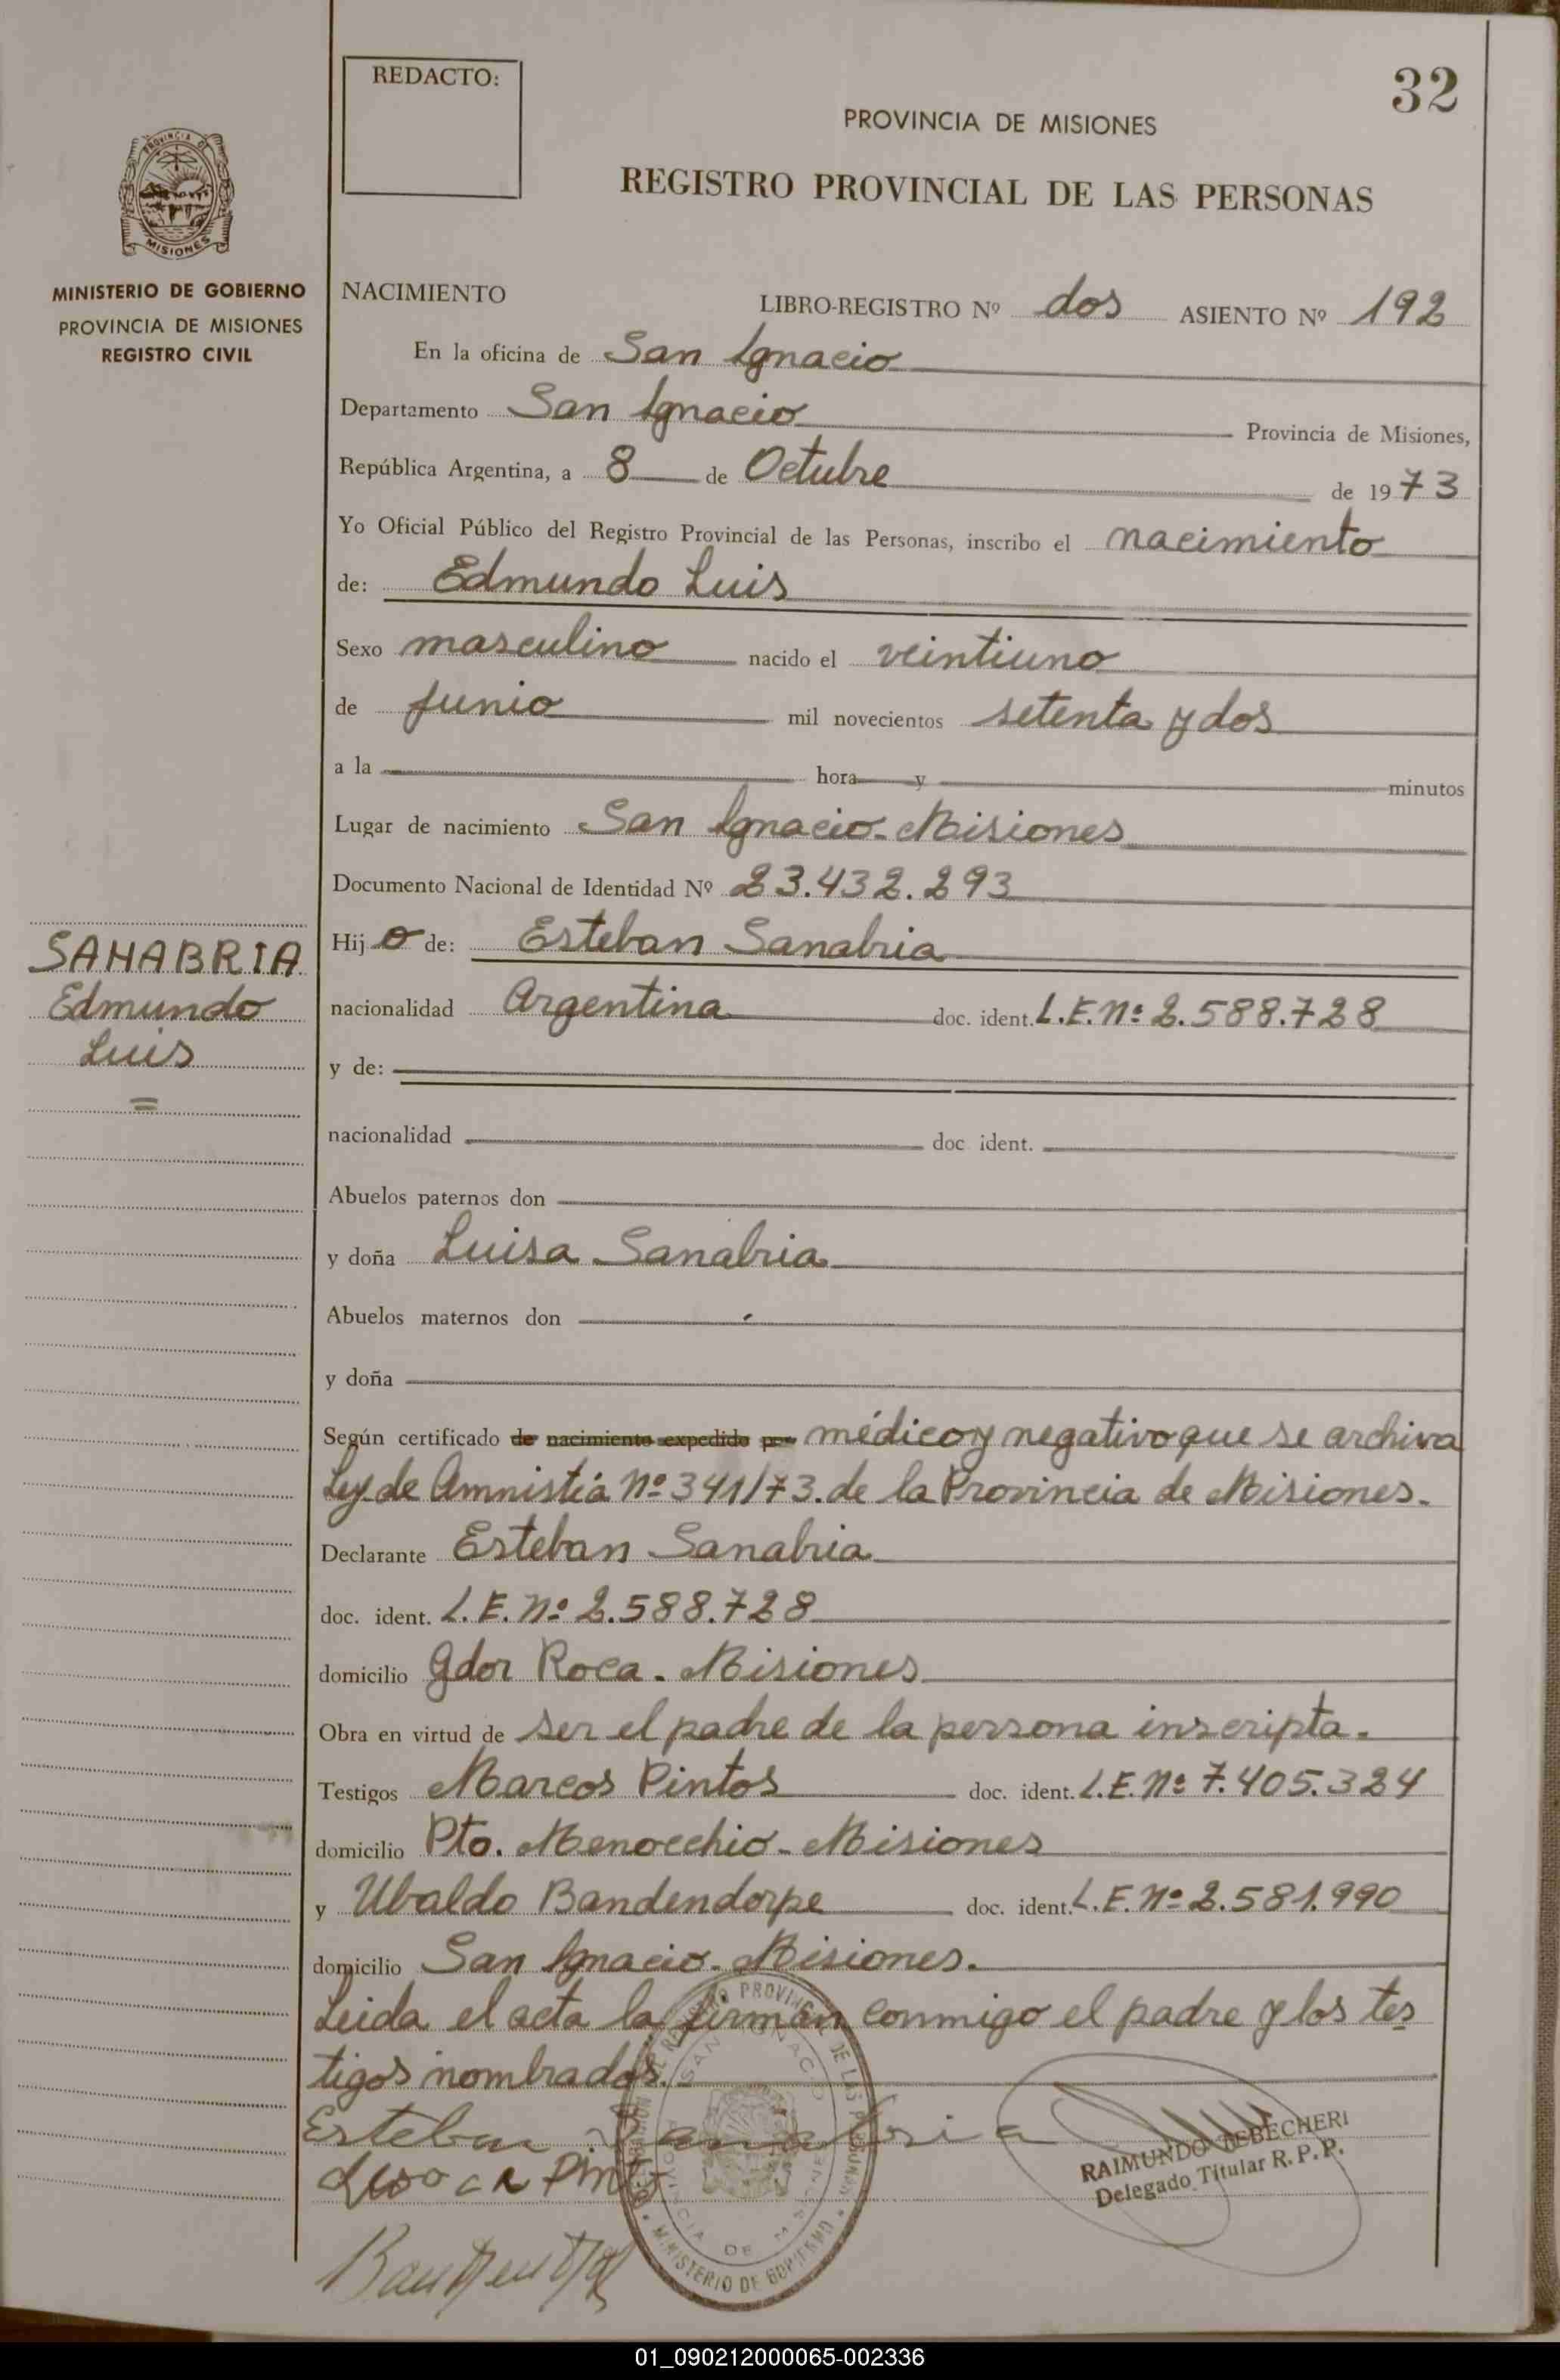 REDACTO:
32
PROVINCIA DE MISIONES
REGISTRO PROVINCIAL DE LAS PERSONAS
PROVINCIA DE
MISIONES
MINISTERIO DE GOBIERNO
PROVINCIA DE MISIONES
REGISTRO CIVIL
NACIMIENTO LIBRO-REGISTRO Nº dos ASIENTO Nº 192
En la oficina de San Ignacio
Departamento San Ignacio Provincia de Misiones,
República Argentina, a 8 de Octubre de 1973
Yo Oficial Público del Registro Provincial de las Personas, inscribo el nacimiento
de: Edmundo Luis
Sexo masculino nacido el veintiuno
de junio mil novecientos setenta y dos
a la hora y minutos
Lugar de nacimiento San Ignacio-Misiones
Documento Nacional de Identidad Nº 23.432.293
SANABRIA
Edmundo
Luis
=
Hijo de: Esteban Sanabria
nacionalidad Argentina doc. ident. L.E.Nº 2.588.728
y de:
nacionalidad doc. ident.
Abuelos paternos don
y doña Luisa Sanabria
Abuelos maternos don
y doña
Según certificado de nacimiento expedido por médico y negativo que se archiva
Ley de Amnistía Nº 341/73. de la Provincia de Misiones.
Declarante Esteban Sanabria
doc. ident. L.E. Nº 2.588.728
domicilio Gdor Roca - Misiones
Obra en virtud de ser el padre de la persona inscripta.
Testigos Marcos Pintos doc. ident. L.E. Nº 7.405.324
domicilio Pto. Menocchio - Misiones
y Ubaldo Bandendorpe doc. ident. L.E. Nº 2.581.990
domicilio San Ignacio - Misiones.
Leida el acta la firman conmigo el padre y los tes
tigos nombrados.
Esteban Sanabria
RAIMUNDO
Delegado Titular R. P. P.
SAN IGNACIO
PROVINCIA DE MISIONES
MINISTERIO DE GOBIERNO
01_090212000065-002336